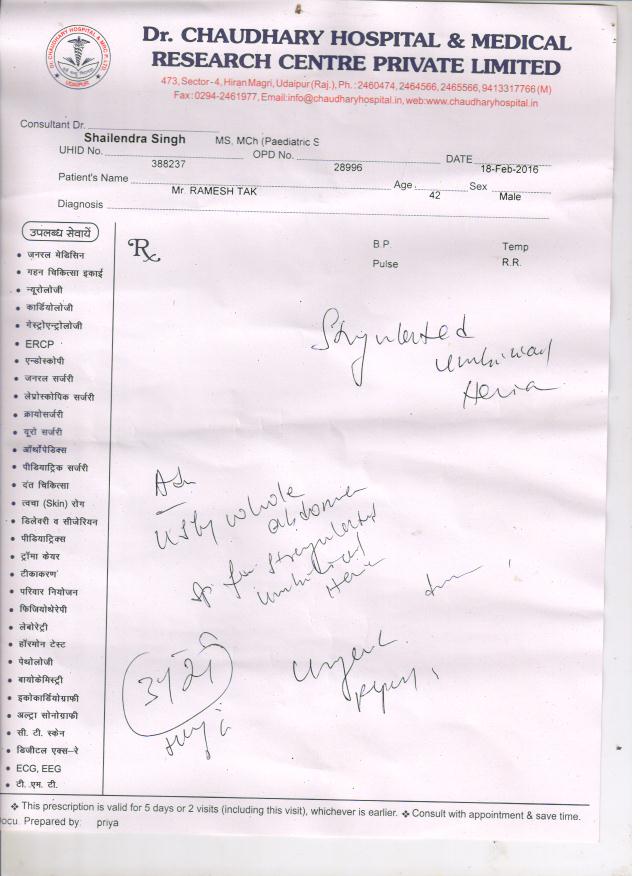 Dr. CHAUDHARY HOSPITAL & MEDICAL
RESEARCH CENTRE PRIVATE LIMITED
473, Sector - 4, Hiran Magri, Udaipur (Raj.), Ph. : 2460474, 2464566, 2465566, 9413317766 (M)
Fax : 0294-2461977, Email:info@chaudharyhospital.in, web:www.chaudharyhospital.in
Consultant Dr.
Shailendra Singh MS, MCh (Paediatric S
UHID No. 388237 OPD No. 28996 DATE 18-Feb-2016
Patient's Name Mr. RAMESH TAK Age 42 Sex Male
Diagnosis
उपलब्ध सेवायें
जनरल मेडिसिन
गहन चिकित्सा इकाई
न्यूरोलोजी
कार्डियोलोजी
गेस्ट्रोएन्ट्रोलोजी
ERCP
एन्डोस्कोपी
जनरल सर्जरी
लेप्रोस्कोपिक सर्जरी
क्रायोसर्जरी
यूरो सर्जरी
ऑर्थोपेडिक्स
पीडियाट्रिक सर्जरी
दंत चिकित्सा
त्वचा (Skin) रोग
डिलेवरी व सीजेरियन
पीडियाट्रिक्स
ट्रॉमा केयर
टीकाकरण
परिवार नियोजन
फिजियोथेरेपी
लेबोरेट्री
हॉरमोन टेस्ट
पेथोलोजी
बायोकेमिस्ट्री
इकोकार्डियोग्राफी
अल्ट्रा सोनोग्राफी
सी. टी. स्केन
डिजीटल एक्स-रे
ECG, EEG
टी. एम. टी.
Rx
B.P. Temp
Pulse R.R.
Strgulated
umbilical
Hernia
Adv
USG whole
abdomen
for strangulated
umbilical
Hernia
Urgent
❖ This prescription is valid for 5 days or 2 visits (including this visit), whichever is earlier. ❖ Consult with appointment & save time.
ocu. Prepared by: priya